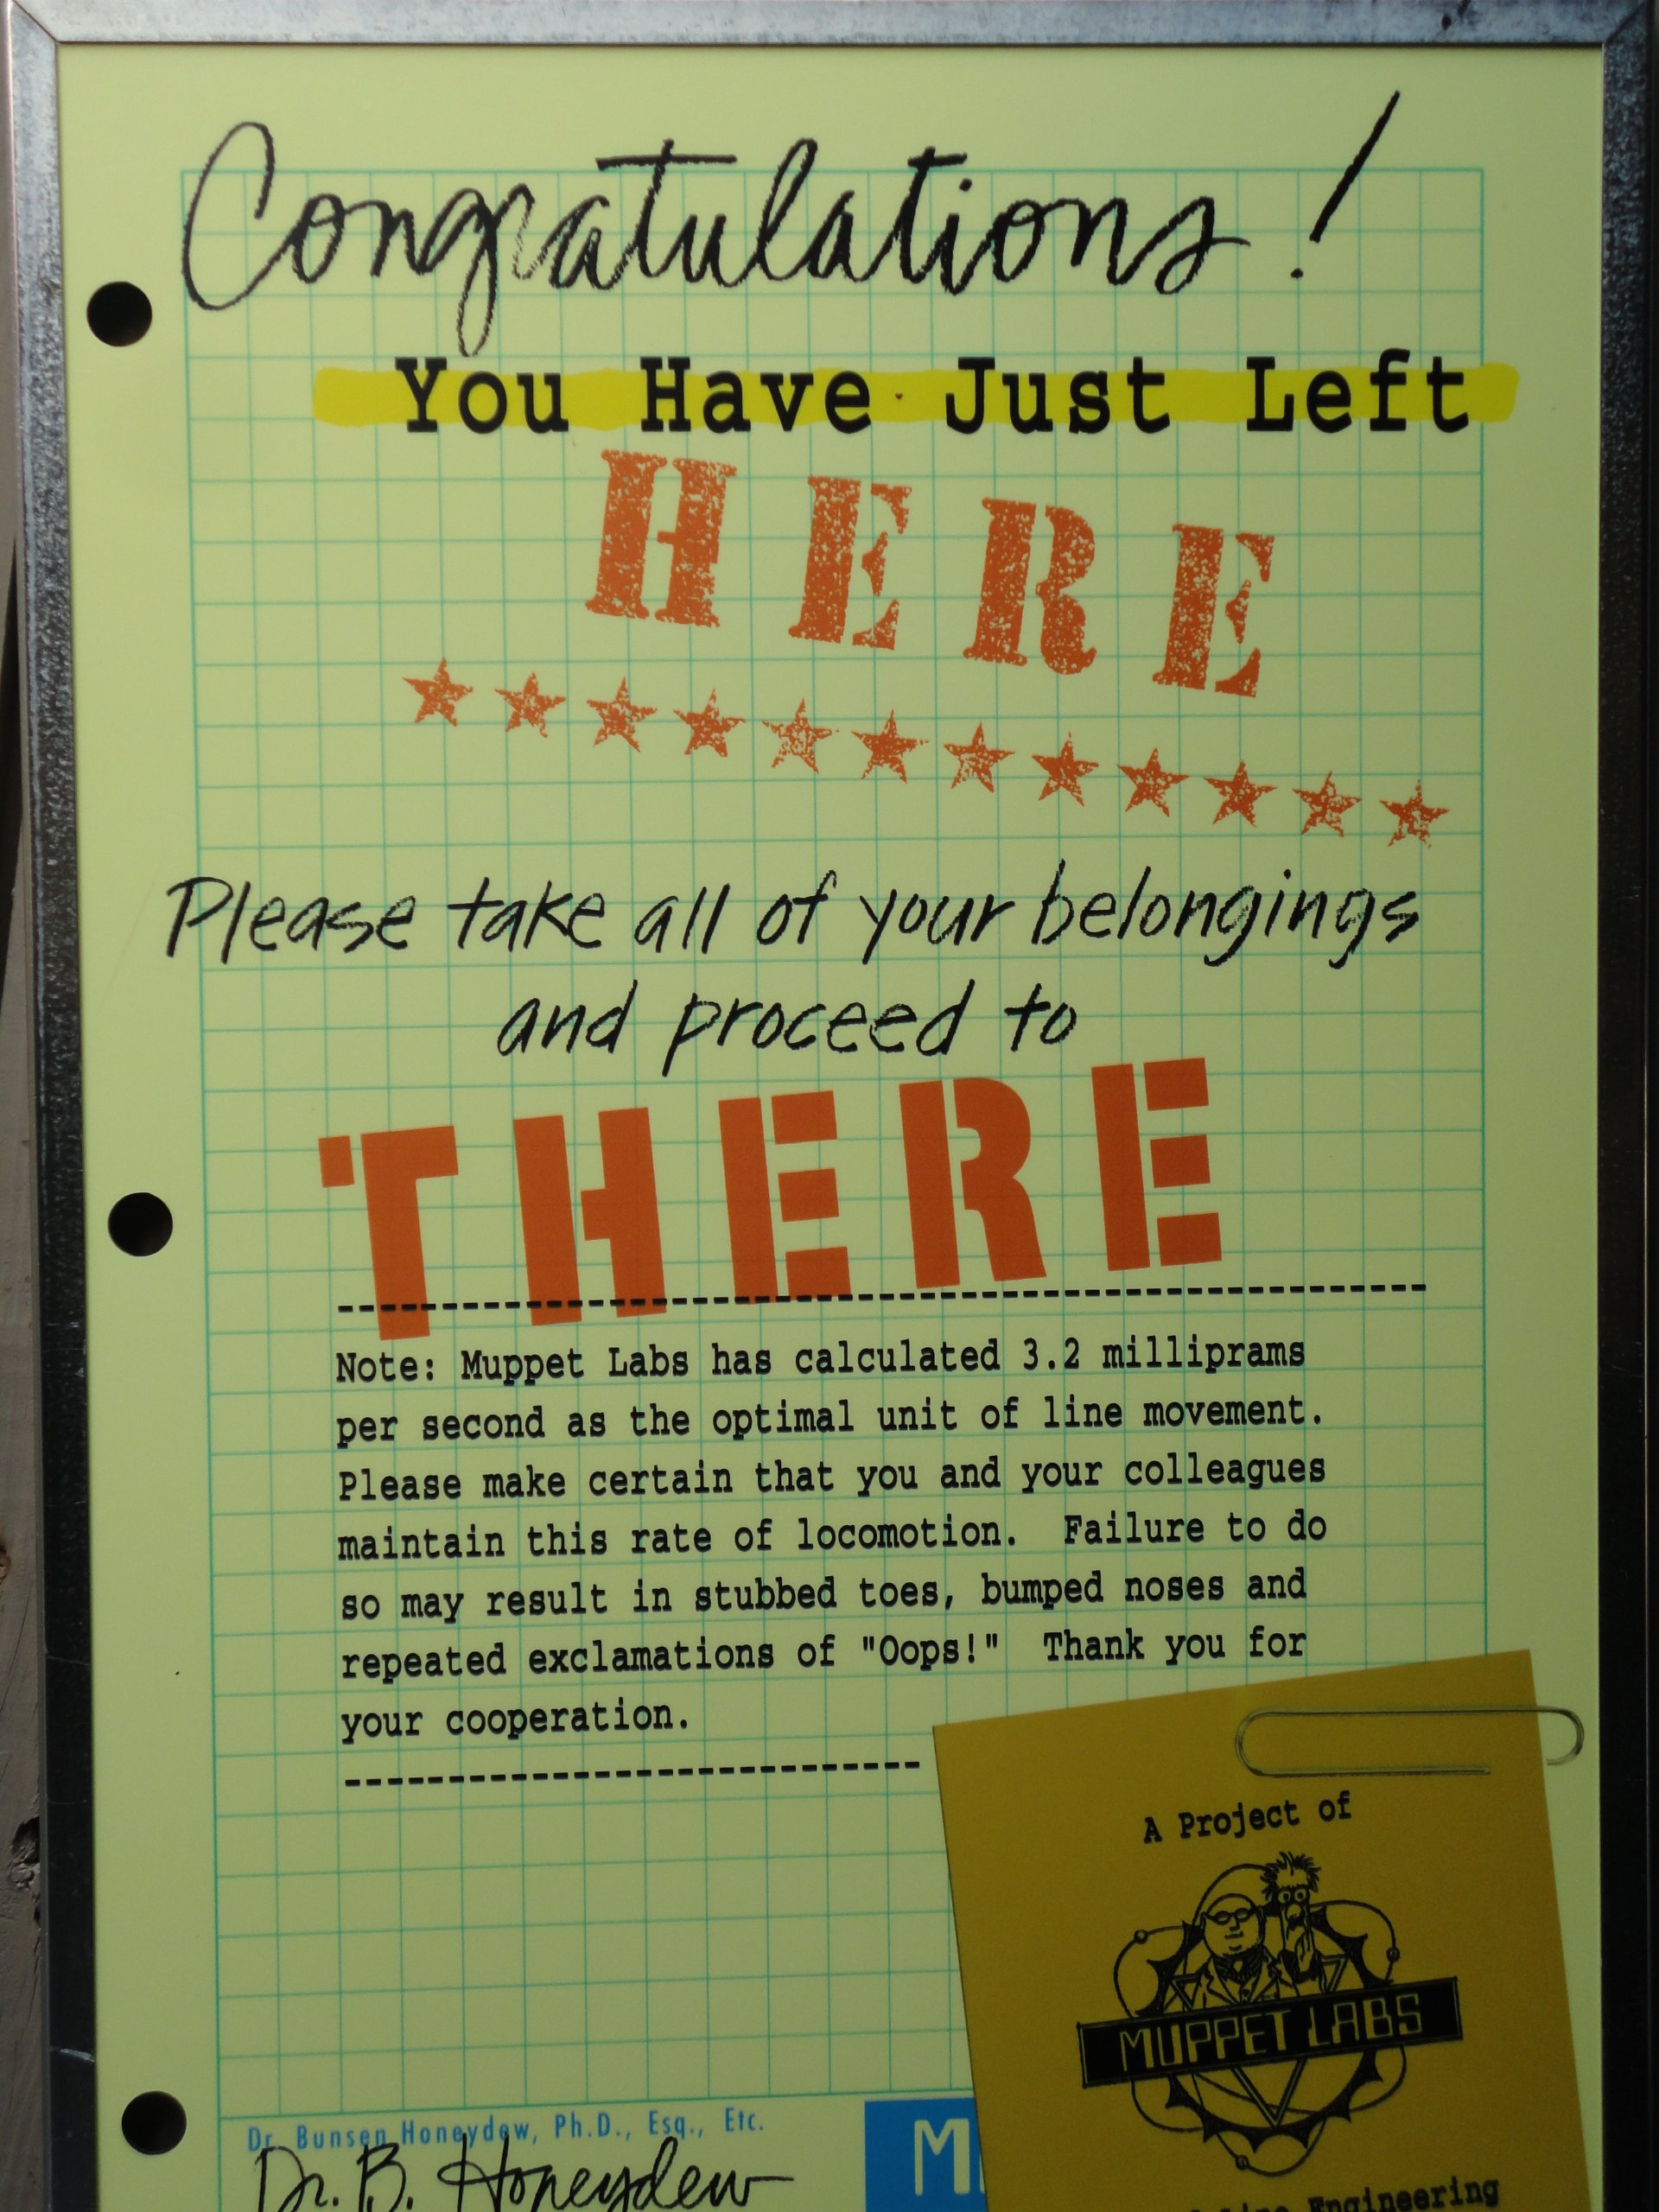 Congratulations!
You Have Just Left
HERE
Please take all of your belongings
and proceed to
THERE
Note: Muppet Labs has calculated 3.2 milliprams
per second as the optimal unit of line movement.
Please make certain that you and your colleagues
maintain this rate of locomotion. Failure to do
so may result in stubbed toes, bumped noses and
repeated exclamations of "Oops!" Thank you for
your cooperation.
A Project of
MUPPET LABS
Engineering
Dr. Bunsen Honeydew, Ph.D., Esq., Etc.
Dr. B. Honeydew
M